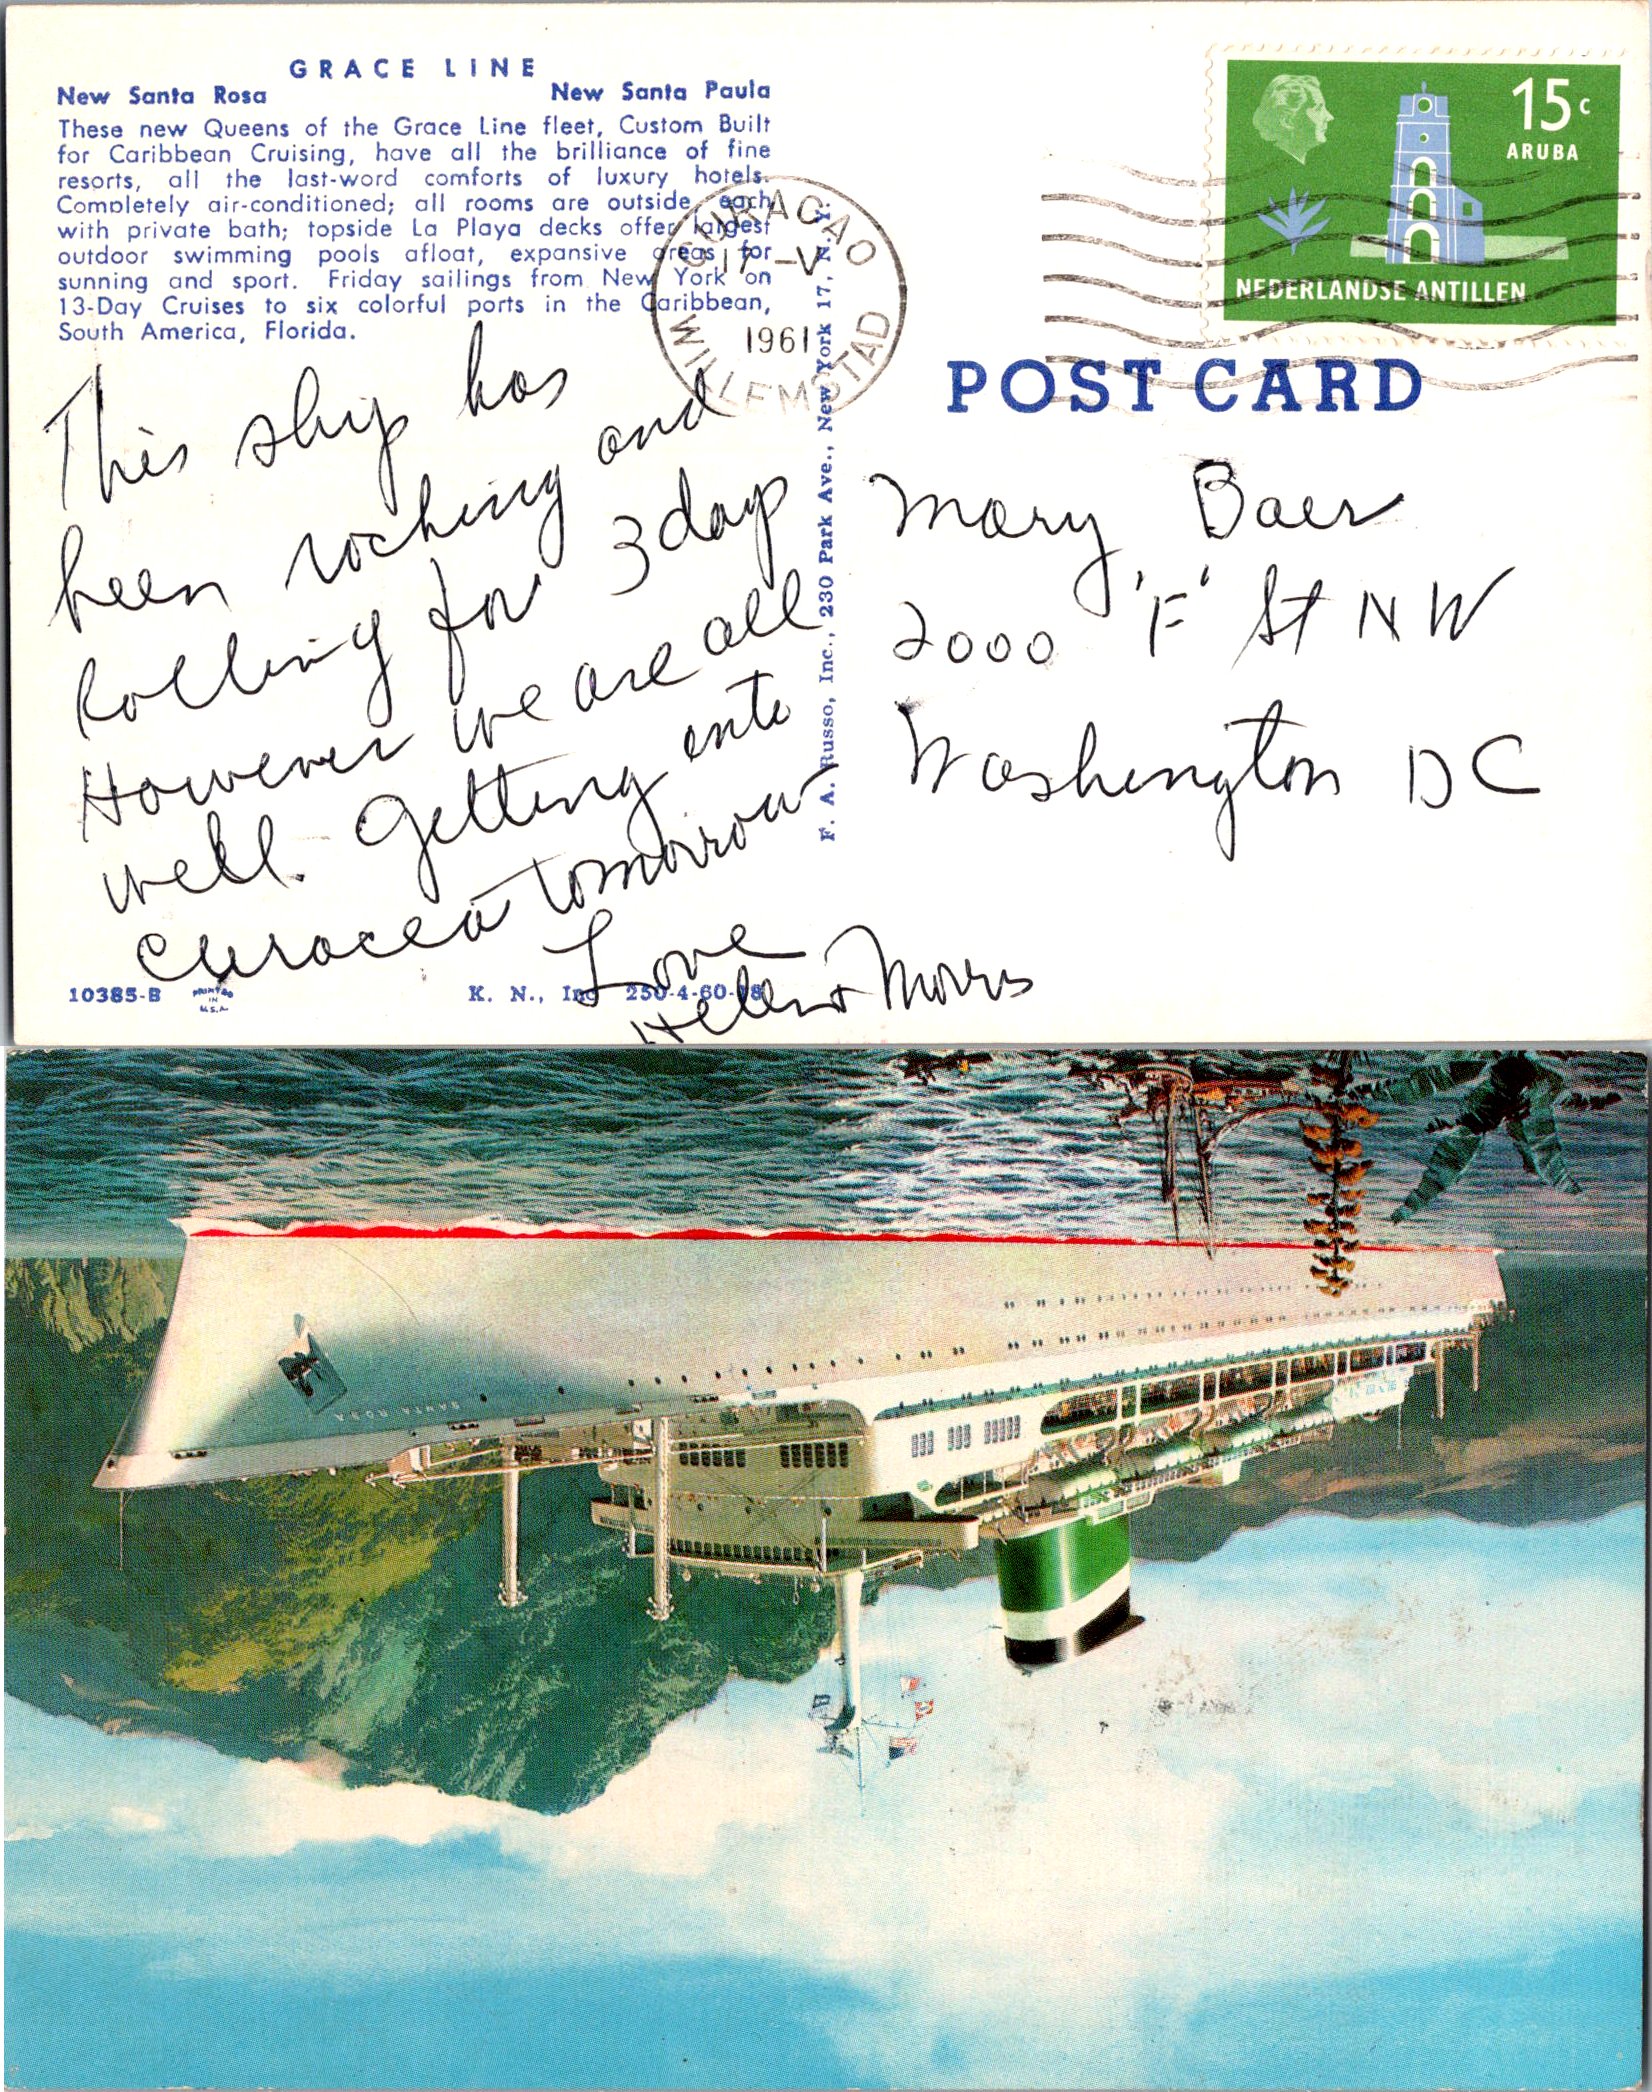 GRACE LINE
New Santa Rosa New Santa Paula
These new Queens of the Grace Line fleet, Custom Built
for Caribbean Cruising, have all the brilliance of fine
resorts, all the last-word comforts of luxury hotels.
Completely air-conditioned; all rooms are outside, each
with private bath; topside La Playa decks offer largest
outdoor swimming pools afloat, expansive areas for
sunning and sport. Friday sailings from New York on
13-Day Cruises to six colorful ports in the Caribbean,
South America, Florida.
CURACAO
17 -V
1961
WILLEMSTAD
15c
ARUBA
NEDERLANDSE ANTILLEN
POST CARD
This ship has
been rocking and
Rolling for 3 days
However we are all
well. Getting into
Curacea tomorrow
Love
Helen + Morris
F. A. Russo, Inc., 230 Park Ave., New York 17, N. Y.
Mary Baer
2000 'F' St NW
Washington DC
10385-B
PRINTED
IN
U.S.A.
K. N., Inc 250-4-60-
SANTA ROSA